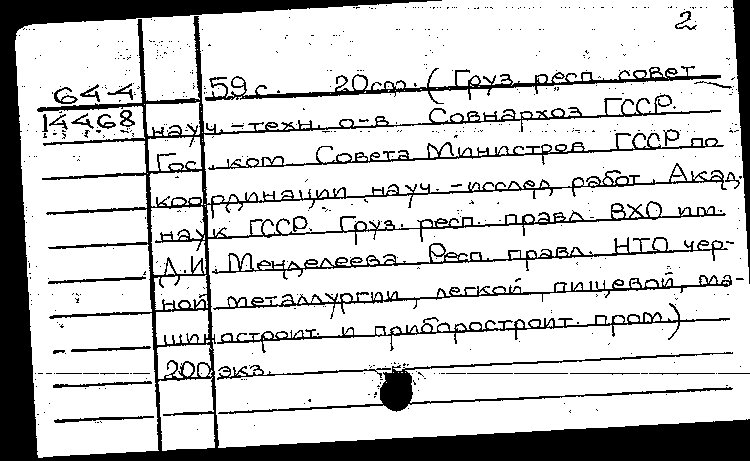 2
644 59 с. 20 см. (Груз. респ. совет
14468 науч.-техн. о-в. Совнархоз ГССР.
Гос. ком. Совета Министров ГССР по
координации науч.-исслед. работ. Акад.
наук ГССР. Груз. респ. правл. ВХО им.
Д.И. Менделеева. Респ. правл. НТО чер-
ной металлургии, легкой, пищевой, ма-
шиностроит. и приборостроит. пром.)
200 экз.